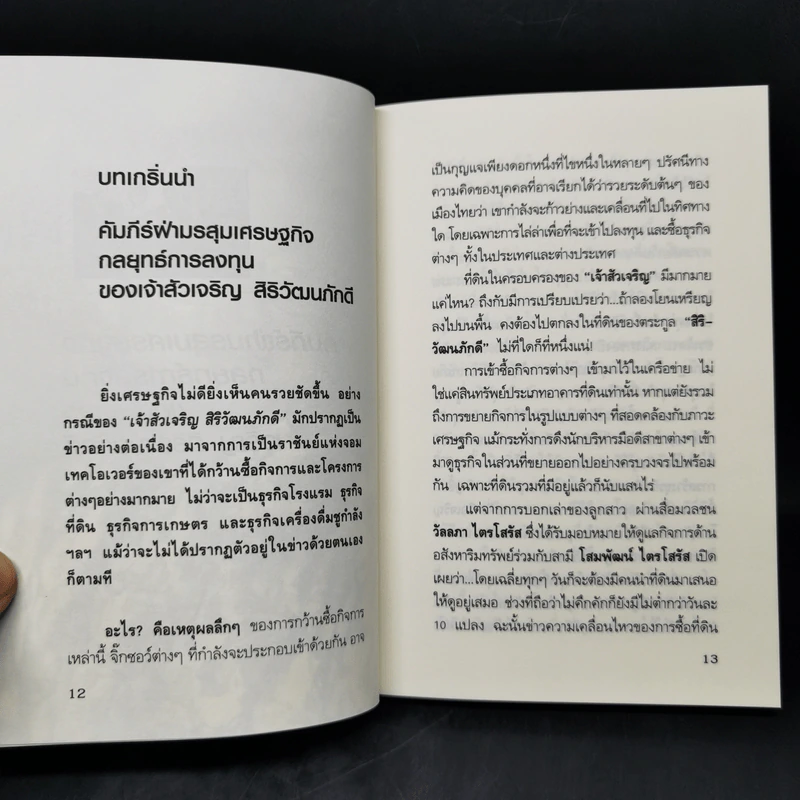 บทเกริ่นนำ
คัมภีร์ฝ่ามรสุมเศรษฐกิจ
กลยุทธ์การลงทุน
ของเจ้าสัวเจริญ สิริวัฒนภักดี
ยิ่งเศรษฐกิจไม่ดียิ่งเห็นคนรวยชัดขึ้น อย่าง
กรณีของ “เจ้าสัวเจริญ สิริวัฒนภักดี” มักปรากฏเป็น
ข่าวอย่างต่อเนื่อง มาจากการเป็นราชันย์แห่งจอม
เทคโอเวอร์ของเขาที่ได้กว้านซื้อกิจการและโครงการ
ต่างๆอย่างมากมาย ไม่ว่าจะเป็นธุรกิจโรงแรม ธุรกิจ
ที่ดิน ธุรกิจการเกษตร และธุรกิจเครื่องดื่มชูกำลัง
ฯลฯ แม้ว่าจะไม่ได้ปรากฏตัวอยู่ในข่าวด้วยตนเอง
ก็ตามที
อะไร? คือเหตุผลลึกๆ ของการกว้านซื้อกิจการ
เหล่านี้ จิ๊กซอว์ต่างๆ ที่กำลังจะประกอบเข้าด้วยกัน อาจ
12
เป็นกุญแจเพียงดอกหนึ่งที่ไขหนึ่งในหลายๆ ปริศนีทาง
ความคิดของบุคคลที่อาจเรียกได้ว่ารวยระดับต้นๆ ของ
เมืองไทยว่า เขากำลังจะก้าวย่างและเคลื่อนที่ไปในทิศทาง
ใด โดยเฉพาะการไล่ล่าเพื่อที่จะเข้าไปลงทุน และซื้อธุรกิจ
ต่างๆ ทั้งในประเทศและต่างประเทศ
ที่ดินในครอบครองของ “เจ้าสัวเจริญ” มีมากมาย
แค่ไหน? ถึงกับมีการเปรียบเปรยว่า...ถ้าลองโยนเหรียญ
ลงไปบนพื้น คงต้องไปตกลงในที่ดินของตระกูล “สิริ-
วัฒนภักดี” ไม่ที่ใดก็ที่หนึ่งแน่!
การเข้าซื้อกิจการต่างๆ เข้ามาไว้ในเครือข่าย ไม่
ใช่แค่สินทรัพย์ประเภทอาคารที่ดินเท่านั้น หากแต่ยังรวม
ถึงการขยายกิจการในรูปแบบต่างๆ ที่สอดคล้องกับภาวะ
เศรษฐกิจ แม้กระทั่งการดึงนักบริหารมือดีสาขาต่างๆ เข้า
มาดูธุรกิจในส่วนที่ขยายออกไปอย่างครบวงจรไปพร้อม
กัน เฉพาะที่ดินรวมที่มีอยู่แล้วก็นับแสนไร่
แต่จากการบอกเล่าของลูกสาว ผ่านสื่อมวลชน
วัลลภา ไตรโสรัส ซึ่งได้รับมอบหมายให้ดูแลกิจการด้าน
อสังหาริมทรัพย์ร่วมกับสามี โสมพัฒน์ ไตรโสรัส เปิด
เผยว่า...โดยเฉลี่ยทุกๆ วันก็จะต้องมีคนนำที่ดินมาเสนอ
ให้ดูอยู่เสมอ ช่วงที่ถือว่าไม่คึกคักก็ยังมีไม่ต่ำกว่าวันละ
10 แปลง ฉะนั้นข่าวความเคลื่อนไหวของการซื้อที่ดิน
13